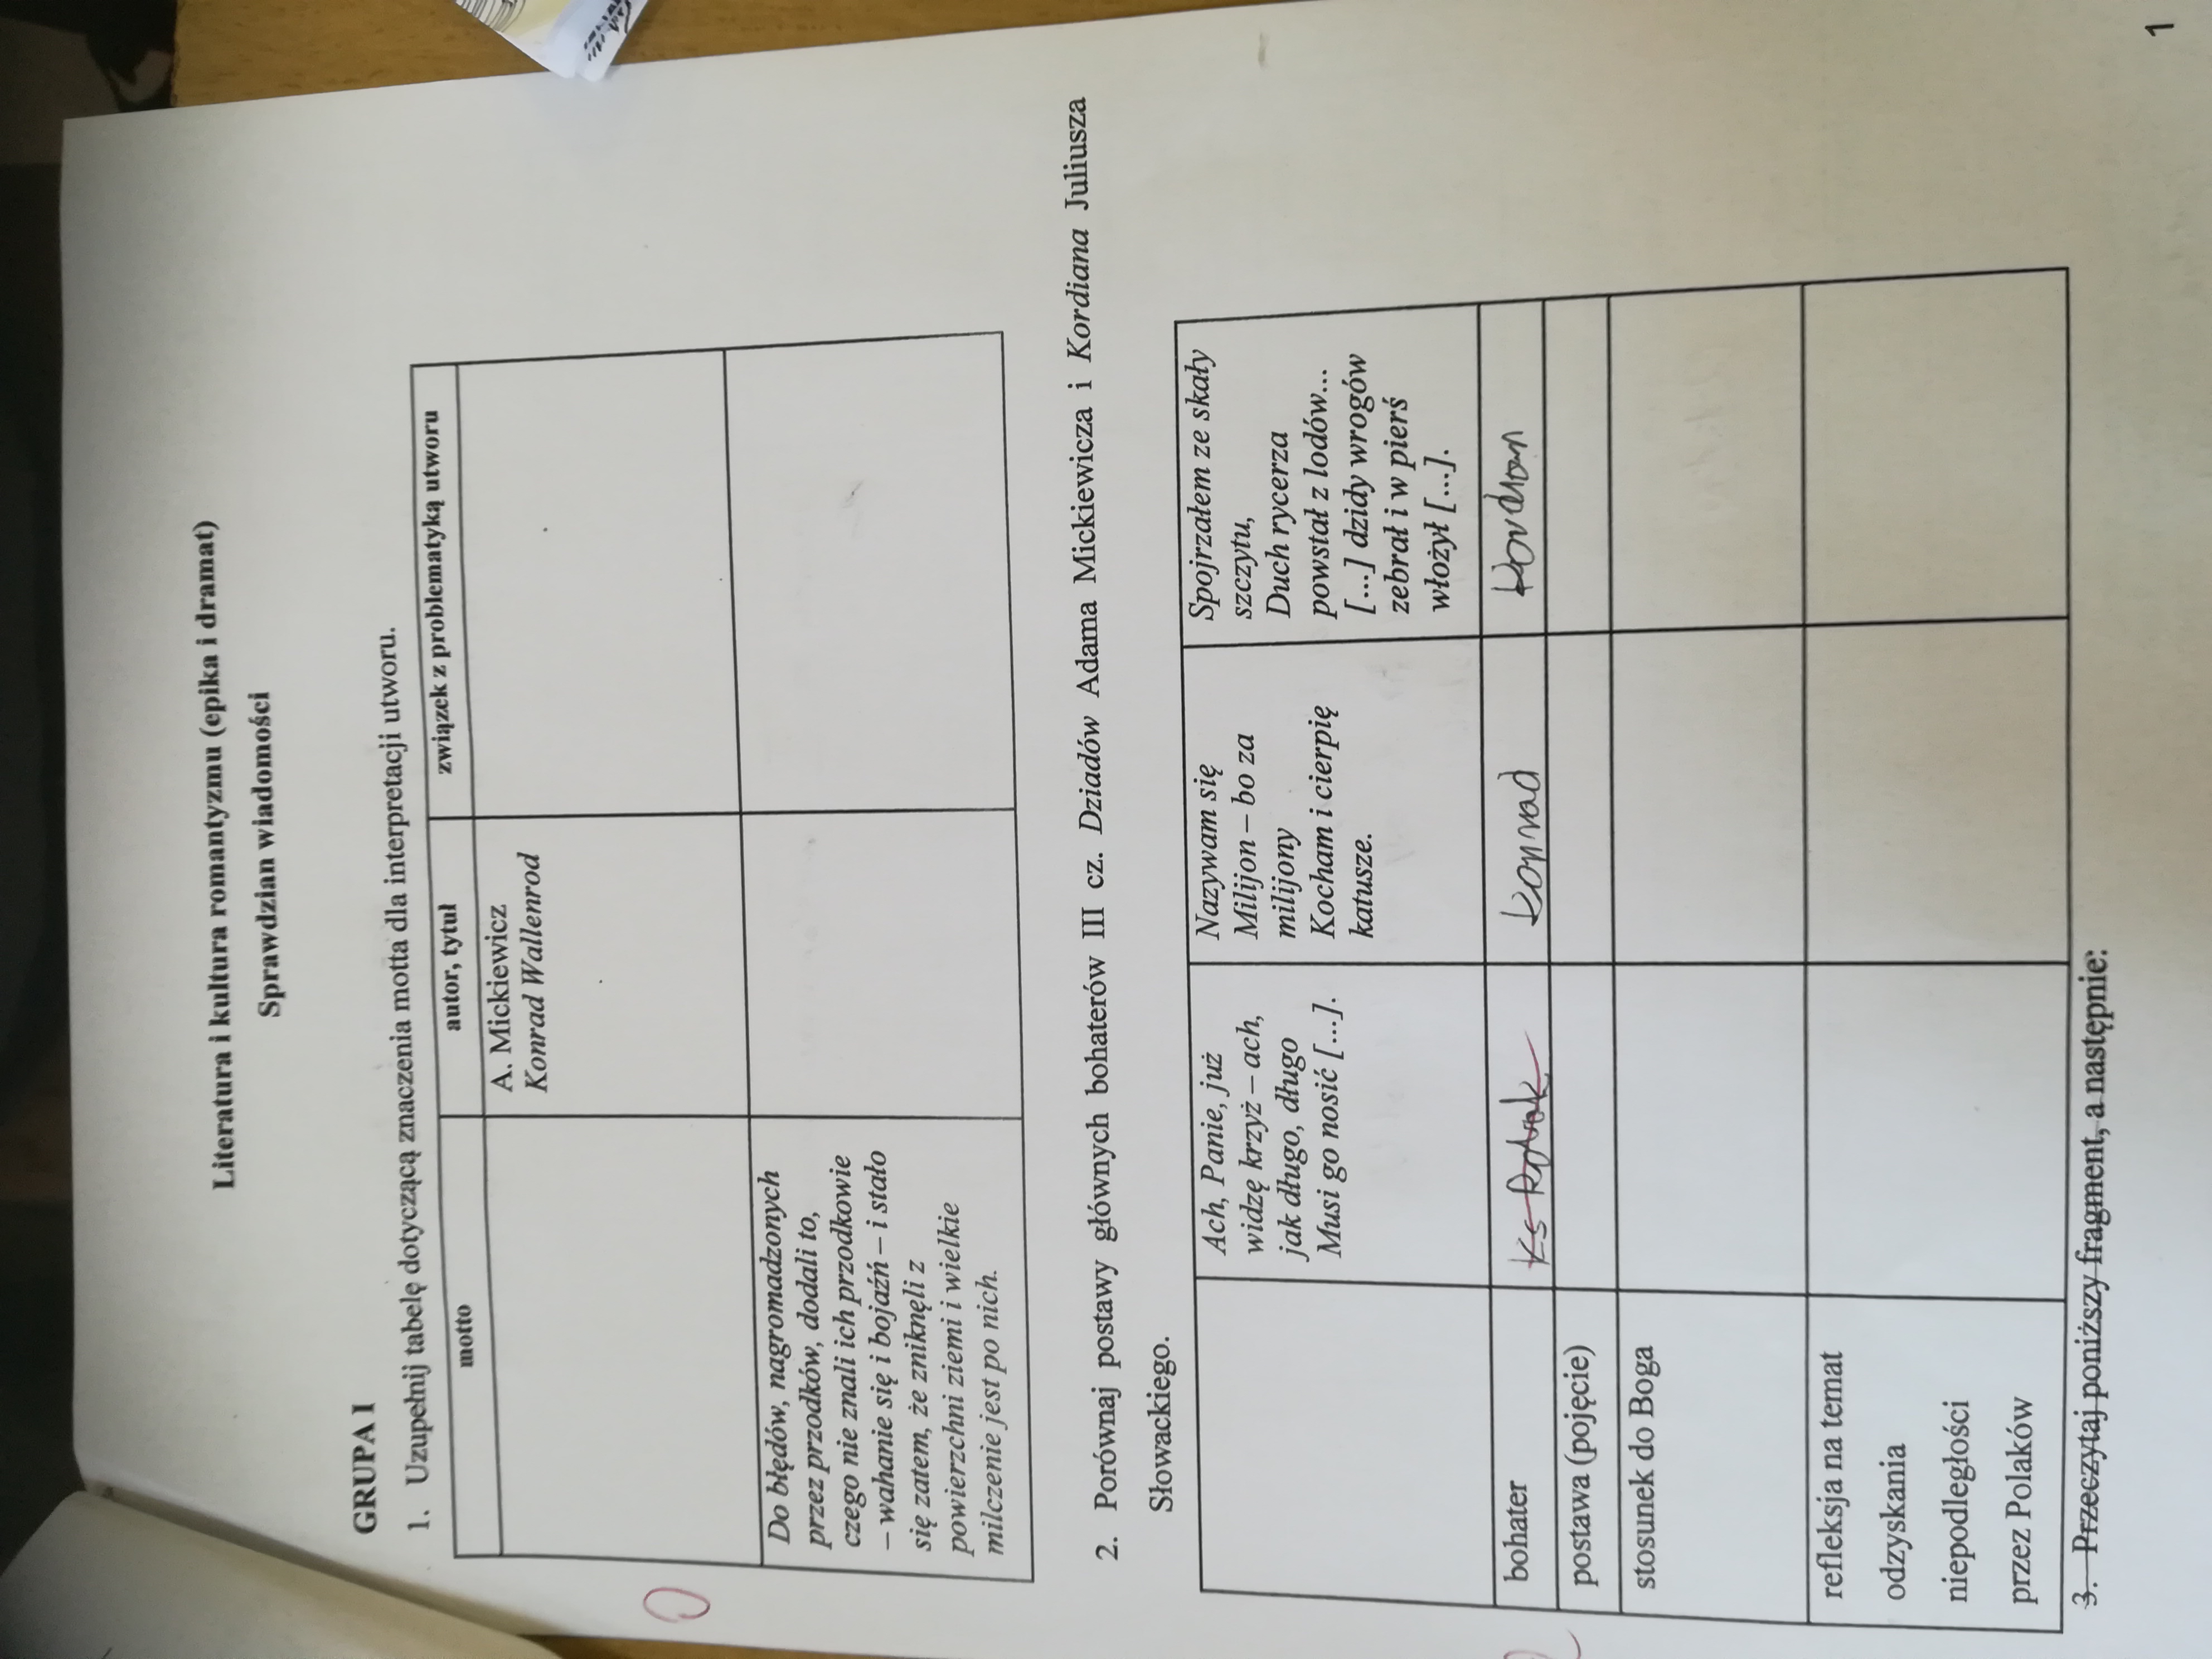 Literatura i kultura romantyzmu (epika i dramat)
Sprawdzian wiadomości
GRUPA I
1. Uzupełnij tabelę dotyczącą znaczenia motta dla interpretacji utworu.
motto
autor, tytuł
związek z problematyką utworu
A. Mickiewicz
Konrad Wallenrod
Do błędów, nagromadzonych
przez przodków, dodali to,
czego nie znali ich przodkowie
– wahanie się i bojaźń – i stało
się zatem, że zniknęli z
powierzchni ziemi i wielkie
milczenie jest po nich.
2. Porównaj postawy głównych bohaterów III cz. Dziadów Adama Mickiewicza i Kordiana Juliusza
Słowackiego.
Ach, Panie, już
widzę krzyż – ach,
jak długo, długo
Musi go nosić [...].
Nazywam się
Milijon – bo za
milijony
Kocham i cierpię
katusze.
Spojrzałem ze skały
szczytu,
Duch rycerza
powstał z lodów...
[...] dzidy wrogów
zebrał i w pierś
włożył [...].
bohater
Ks Robak
Konrad
Kordian
postawa (pojęcie)
stosunek do Boga
refleksja na temat
odzyskania
niepodległości
przez Polaków
3. Przeczytaj poniższy fragment, a następnie:
1